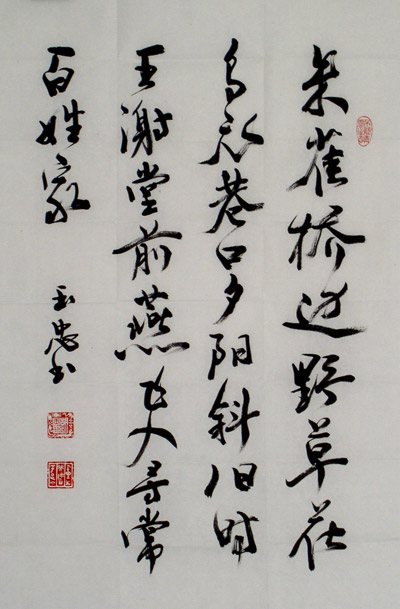 朱雀桥边野草花
乌衣巷口夕阳斜旧时
王谢堂前燕飞入寻常
百姓家
玉忠书